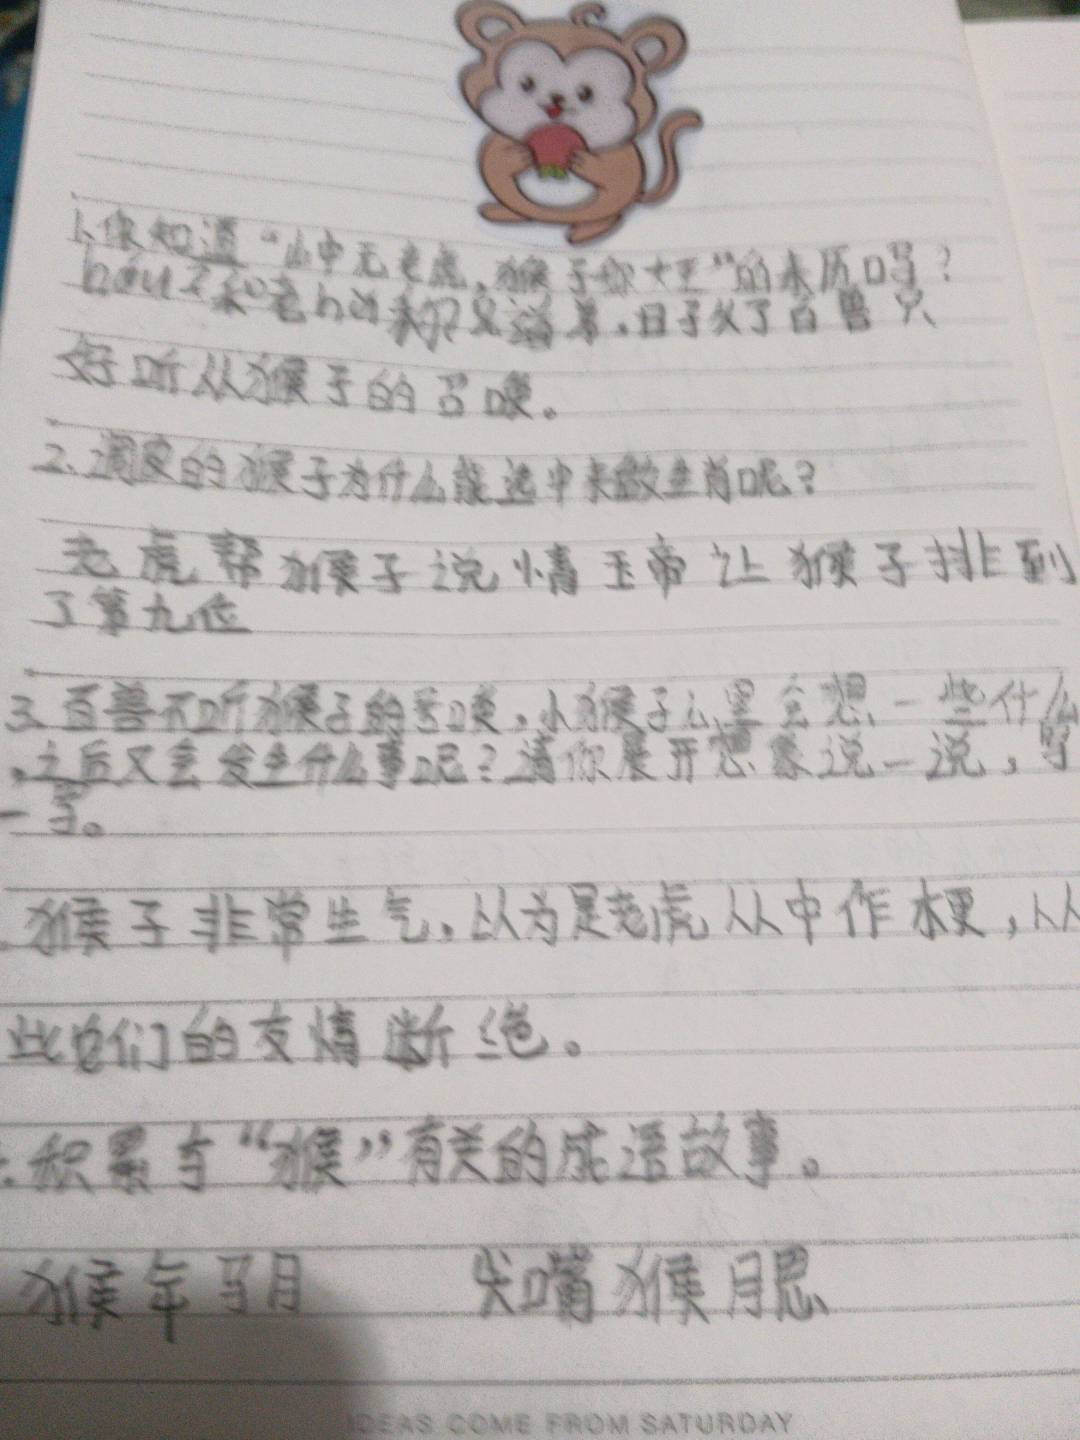 1、你知道“山中无老虎,猴子称大王”的来历吗?
hóu子和老hǔ称兄道弟,日子久了百兽只
好听从猴子的召唤。
2、调皮的猴子为什么能选中来做生肖呢?
老虎帮猴子说情玉帝让猴子排到
了第九位
3、百兽不听猴子的号唤,小猴子心里会想一些什么
,之后又会发生什么事呢?请你展开想象说一说,写
一写。
猴子非常生气,以为是老虎从中作梗,从
此它们的友情断绝。
积累与“猴”有关的成语故事。
猴年马月 尖嘴猴腮
IDEAS COME FROM SATURDAY